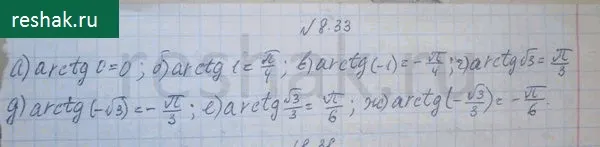 reshak.ru
№8.33
а) arctg 0=0; б) arctg 1=π/4; в) arctg(-1)=-π/4; г) arctg√3=π/3
д) arctg(-√3)=-π/3; е) arctg √3/3=π/6; ж) arctg(-√3/3)=-π/6.